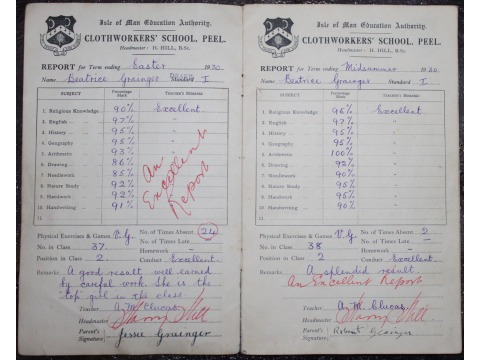 Isle of Man Education Authority.
CLOTHWORKERS' SCHOOL, PEEL.
Headmaster: H. HILL, B.Sc.
REPORT for Term ending Easter 1930
Name Beatrice Grainger I
SUBJECT Percentage Mark TEACHER'S REMARKS
1. Religious Knowledge 90% Excellent
2. English 97% "
3. History 95% "
4. Geography 95% "
5. Arithmetic 93% "
6. Drawing 86%
7. Needlework 85%
8. Nature Study 92%
9. Composition 92%
10. Handwriting 91%
11.
An Excellent Report
Physical Exercises & Games V.G. No. of Times Absent 24
No. of Times Late
No. in Class 37. Homework
Position in Class 2. Conduct Excellent
Remarks A good result well earned
by careful work. She is the
"top" girl in the class
Teacher A. M. Clucas
Headmaster Harry Hill
Parent's Signature: Jessie Grainger
Isle of Man Education Authority.
CLOTHWORKERS' SCHOOL, PEEL.
Headmaster: H. HILL, B.Sc.
REPORT for Term ending Midsummer 1930
Name Beatrice Grainger Standard I
SUBJECT Percentage Mark TEACHER'S REMARKS
1. Religious Knowledge 96% Excellent
2. English 97% "
3. History 95% "
4. Geography 95% "
5. Arithmetic 100% "
6. Drawing 92% "
7. Needlework 90% "
8. Nature Study 95% "
9. Composition 90% "
10. Handwriting 90% "
11.
Physical Exercises & Games V.G. No. of Times Absent 2
No. of Times Late
No. in Class 38 Homework
Position in Class 2 Conduct Excellent
Remarks A splendid result
An Excellent Report
Teacher A. M. Clucas
Headmaster Harry Hill
Parent's Signature: Robert Grainger